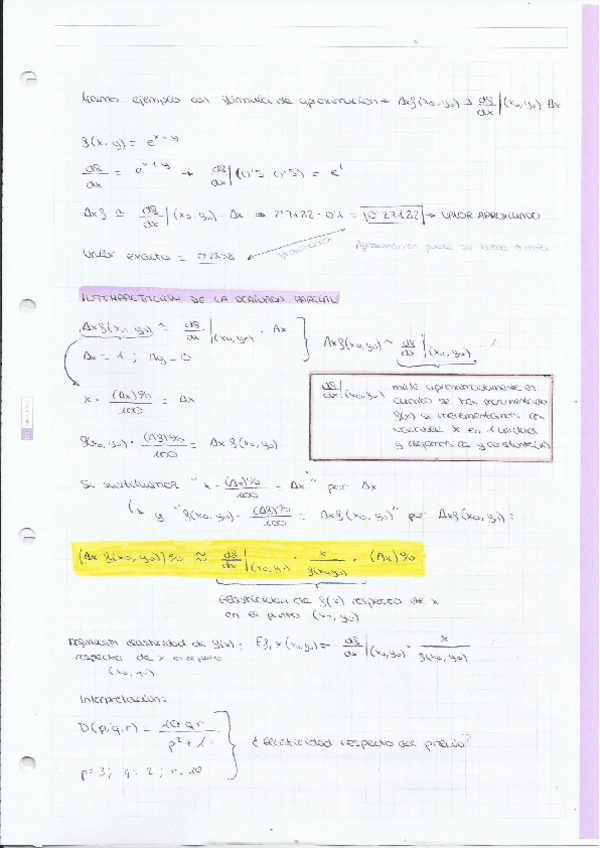 ejemplo con fórmula de aproximación → Δxf(x₀,y₀) ≃ df/dx|(x₀,y₀) · Δx
f(x,y) = e^(x+y)
df/dx = e^(x+y) → df/dx|(0'5, 0'5) = e¹
Δxf ≃ df/dx|(x₀,y₀) · Δx ⇒ 2'7182 · 0'1 = 0'27182 → VALOR APROXIMADO
Valor exacto =
Aproximación puede ser
INTERPRETACIÓN DE LA DERIVADA PARCIAL
Δxf(x₀,y₀) ≃ df/dx|(x₀,y₀) · Δx
Δx = 1 ; Δy = 0
Δxf(x₀,y₀) ≃ df/dx|(x₀,y₀)
df/dx|(x₀,y₀) mide aproximadamente en
cuanto se ha incrementado
f(x) si incrementamos la
variable x en 1 unidad
y dejamos la y constante
x · (Δx)%/100 = Δx
f(x₀,y₀) · (Δf)%/100 = Δxf(x₀,y₀)
Si sustituimos "x · (Δx)%/100 = Δx" por Δx
y "f(x₀,y₀) · (Δf)%/100 = Δxf(x₀,y₀)" por Δxf(x₀,y₀):
(Δxf(x₀,y₀))% ≃ df/dx|(x₀,y₀) · x/f(x₀,y₀) · (Δx)%
Elasticidad de f(x) respecto de x
en el punto (x₀,y₀)
Definición elasticidad de f(x): Ef,x(x₀,y₀) = df/dx|(x₀,y₀) · x/f(x₀,y₀)
respecto de x en el punto
(x₀,y₀)
Interpretación:
D(p,q,r) = 10qr/(p²+1)
¿Elasticidad respecto del precio?
p=3; q=2; r=10